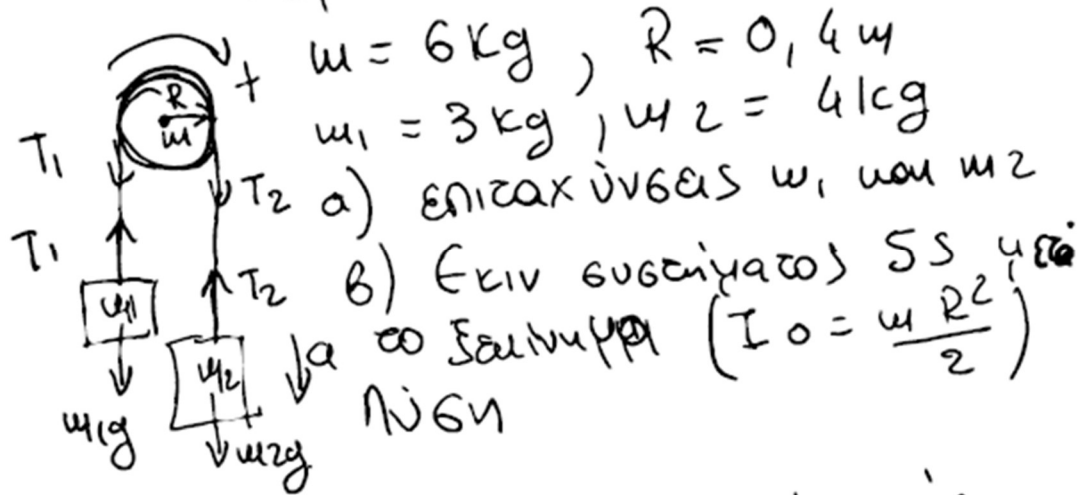 m = 6 kg , R = 0,4 m
m₁ = 3 kg , m₂ = 4 kg
α) επιταχύνσεις m₁ και m₂
β) Εκιν συστήματος 5s μετά
το ξεκίνημα (Iο = m R²/2)
Λύση
R
m
+
T₁
T₂
T₁
T₂
m₁
m₂
a
m₁g
m₂g